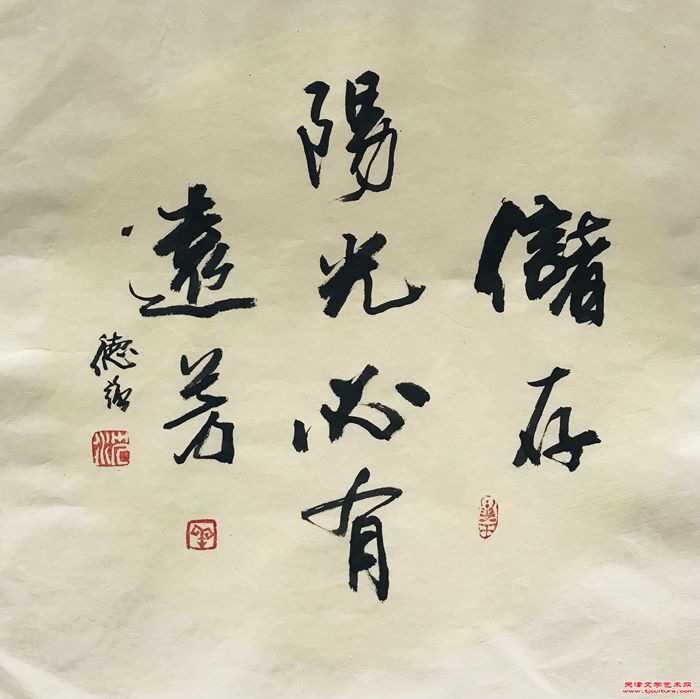 儲存
陽光必有
遠芳
天津文学艺术网
www.tjculture.com